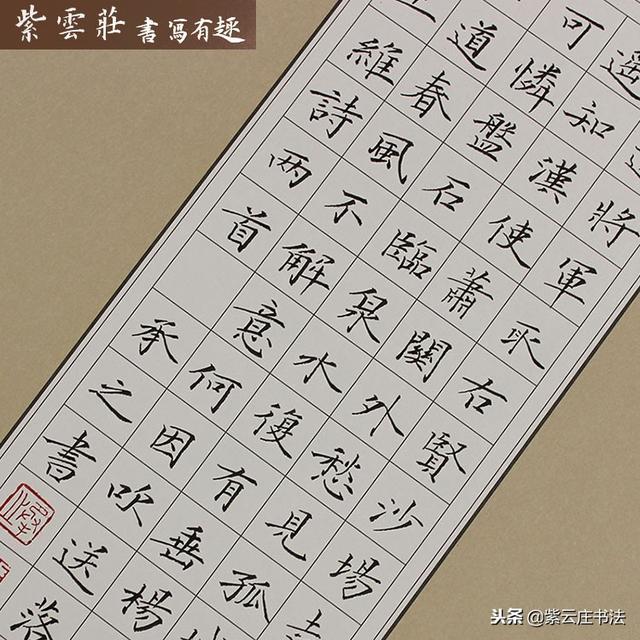 紫雲莊 書寫有趣
將軍取右賢沙場
遥知漢使蕭關外愁見孤
可憐盤石臨泉水復有垂楊
道春風不解意何因吹送落
維詩两首
承之書
头条 @紫云庄书法